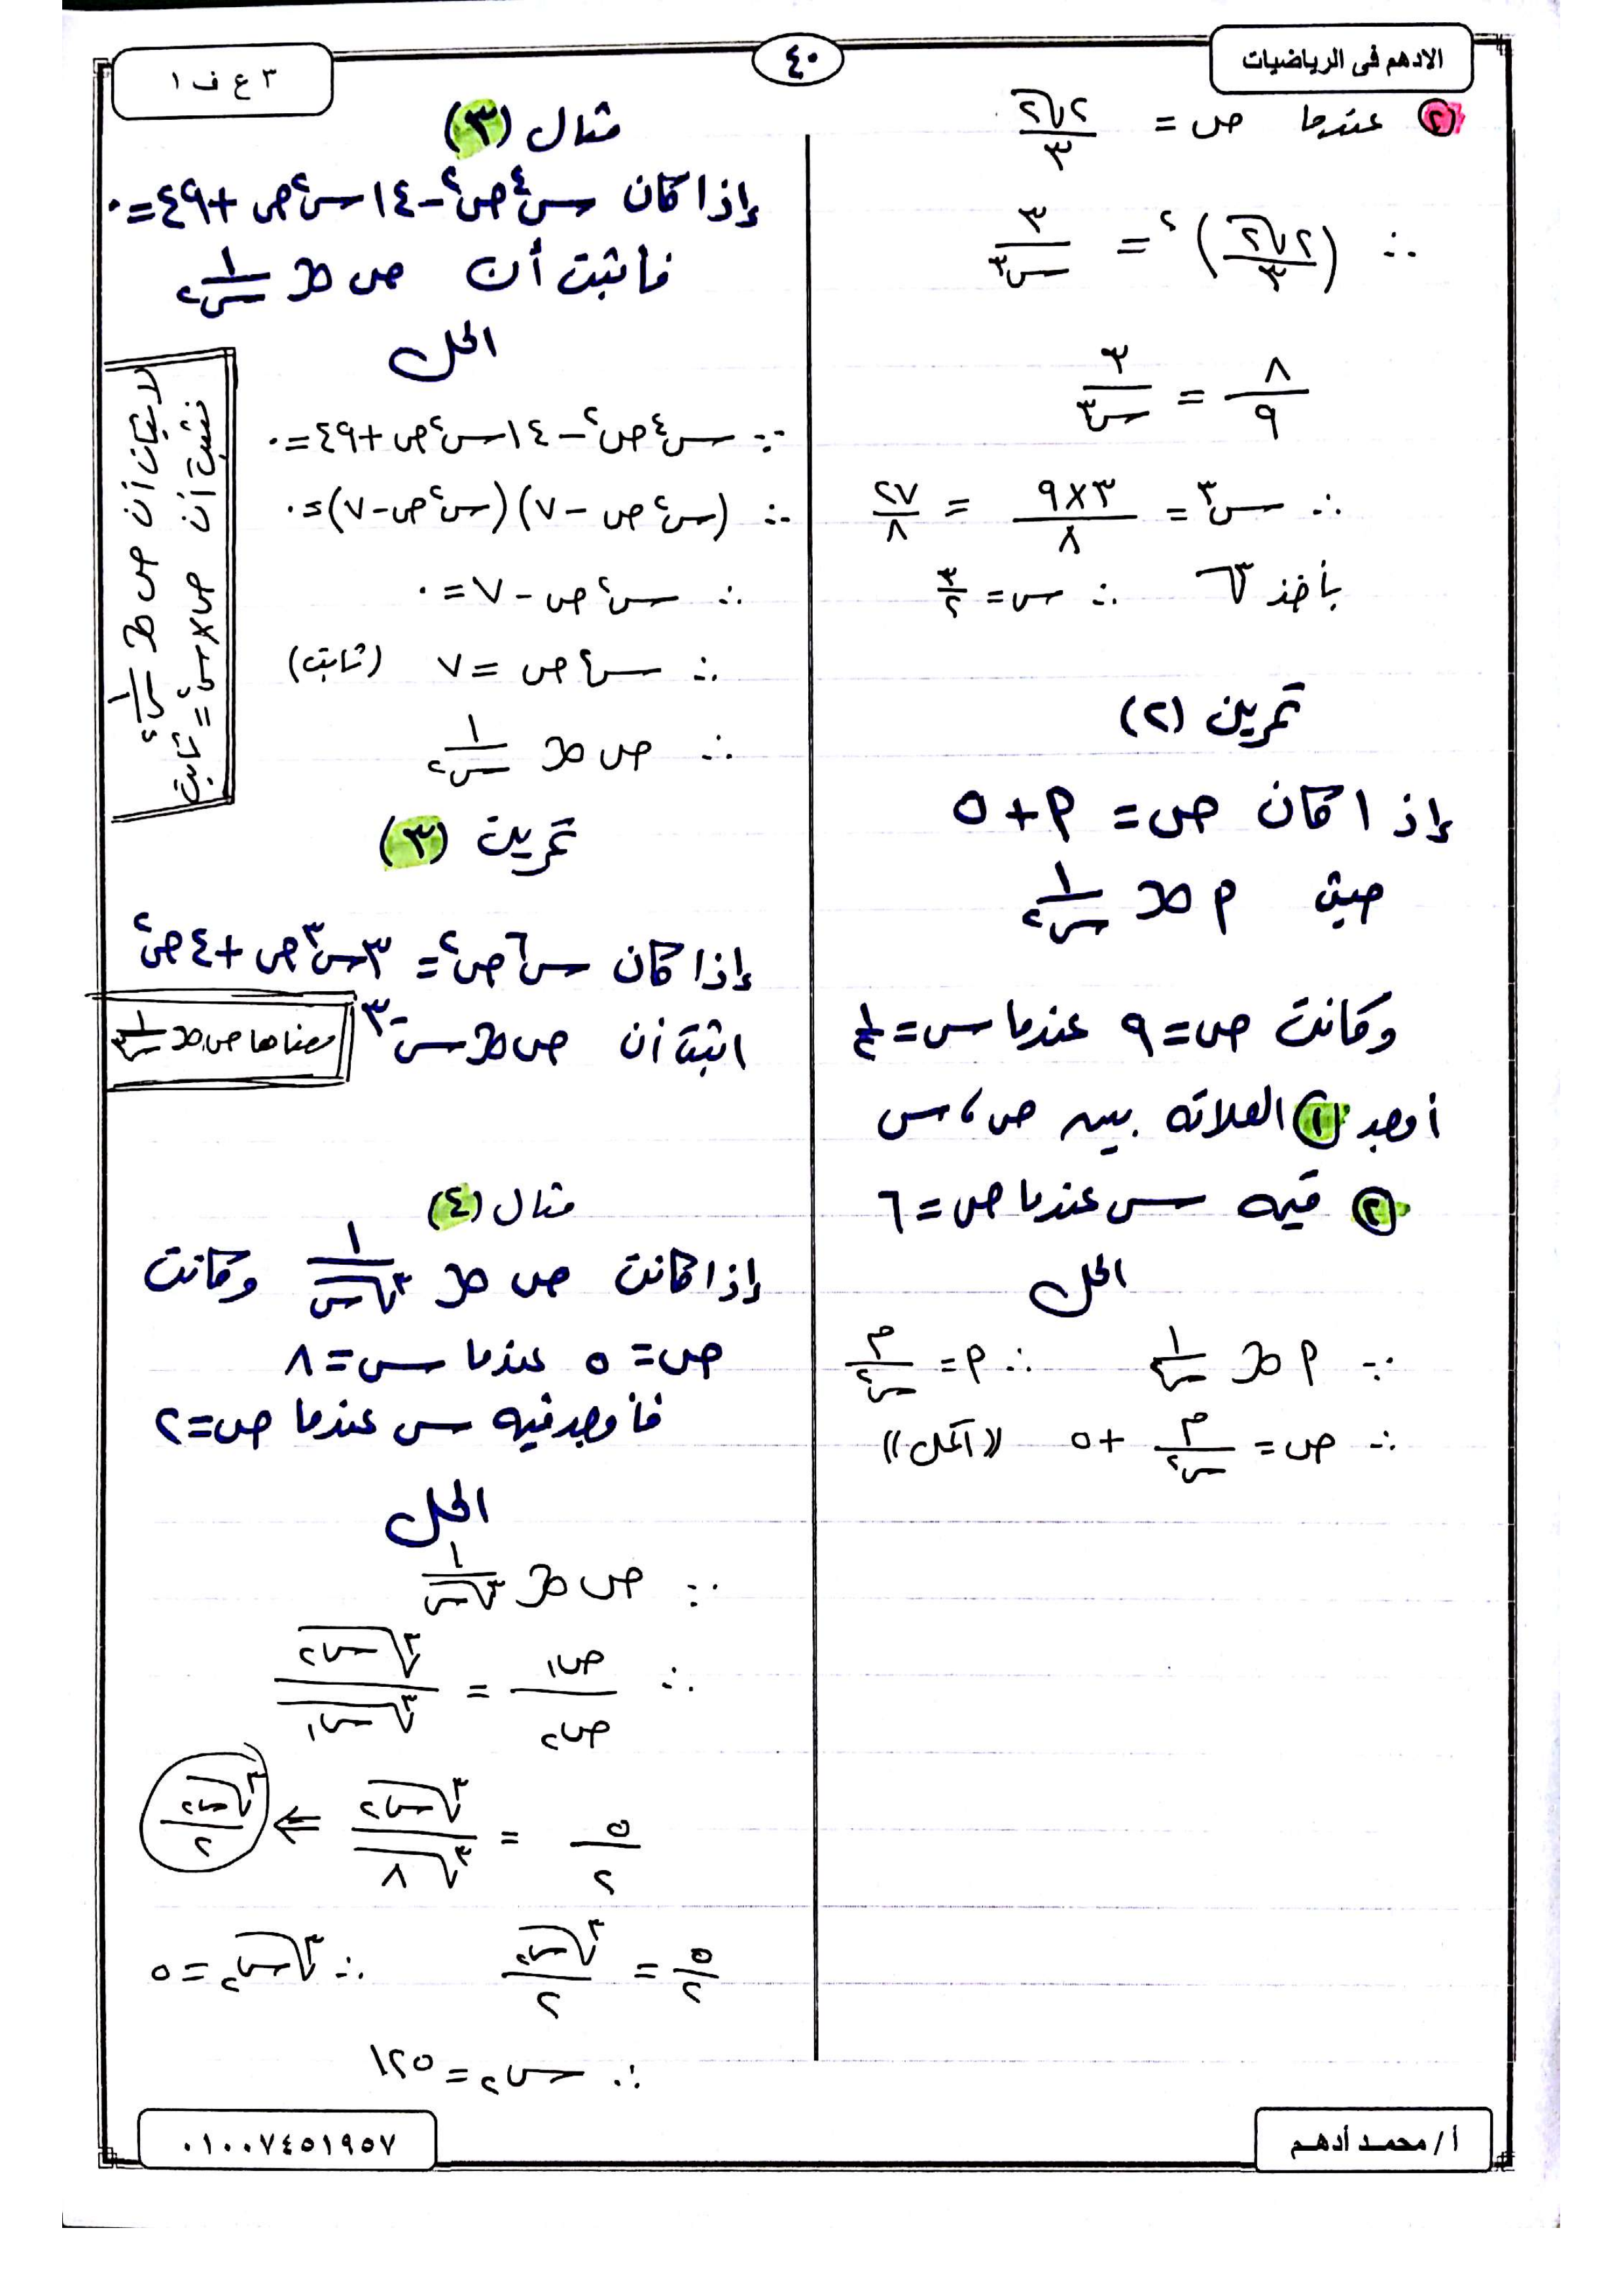 الادهم فى الرياضيات
٤٠
٣ ع ف ١
(٢) عندما ص = ٢√٢ / ٣
∴ (٢√٢ / ٣)^٢ = ٣ / س^٣
٨ / ٩ = ٣ / س^٣
∴ س^٣ = ٩×٣ / ٨ = ٢٧ / ٨
بأخذ ∛ ∴ س = ٣ / ٢
تمرين (٢)
إذا كان ص = م + ٥
حيث م ∝ ١ / س^٢
وكانت ص = ٩ عندما س =
أوجد (١) العلاقة بين ص ، س
(٢) قيمة س عندما ص = ٦
الحل
∵ م ∝ ١ / س^٢ ∴ م = م / س^٢
∴ ص = م / س^٢ + ٥ ((اكمل))
مثال (٣)
إذا كان س^٤ ص^٢ - ١٤ س^٢ ص + ٤٩ = ٠
فاثبت أن ص ∝ ١ / س^٢
الحل
∵ س^٤ ص^٢ - ١٤ س^٢ ص + ٤٩ = ٠
∴ (س^٢ ص - ٧) (س^٢ ص - ٧) = ٠
∴ س^٢ ص - ٧ = ٠
∴ س^٢ ص = ٧ (ثابت)
∴ ص ∝ ١ / س^٢
لاثبات أن ص ∝ ١ / س^٢
نثبت أن ص × س^٢ = ثابت
تمرين (٣)
إذا كان س^٦ ص^٢ = ٣ س^٣ ص + ٤ ص^٢
اثبت أن ص ∝ س^-٣
معناها ص ∝ ١ / س^٣
مثال (٤)
إذا كانت ص ∝ ١ / ∛س وكانت
ص = ٥ عندما س = ٨
فأوجد قيمة س عندما ص = ٢
الحل
∵ ص ∝ ١ / ∛س
∴ ص١ / ص٢ = ∛س٢ / ∛س١
٥ / ٢ = ∛س٢ / ∛٨ ⇐ ∛س٢ / ٢
٥ / ٢ = ∛س٢ / ٢ ∴ ∛س٢ = ٥
∴ س٢ = ١٢٥
أ / محمد أدهم
٠١٠٠٧٤٥١٩٥٧